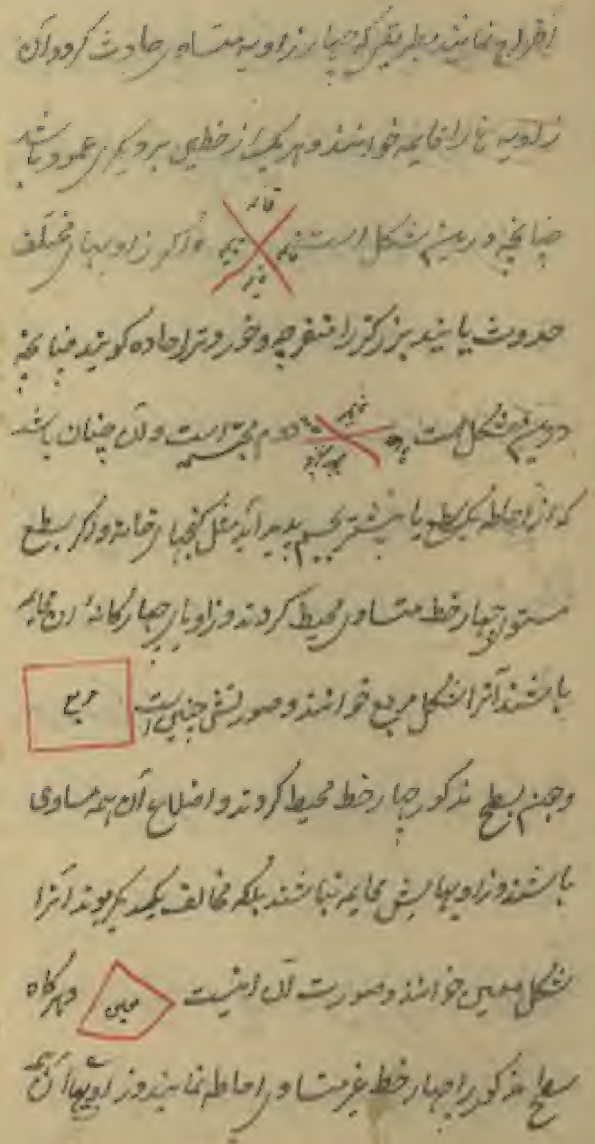 اخراج نمایند بطریقی که چهار زاویه متساوی حادث کردد آن
زاویه ها را قایمه خوانند و هر یک از خطین بر دیکری عمود باشد
چنانچه درین شکل است قایمه قایمه قایمه قایمه و اکر زاویهای مختلف
حدوث یابند بزرکتر را منفرجه و خوردتر را حاده کویند چنانچه
درین شکل است حاده منفرجه حاده منفرجه دوم مجسمه است و آن چنان باشد
که از احاطه یک سطح یا بیشتر بجسم پدید آید مثل کنجهای خانه و اکر بسطح
مستوی چهار خط متساوی محیط کردند و زاویای چهارکانهٔ آن قایمه
باشند آنرا شکل مربع خوانند و صورتش چنین است مربع
و چون بسطح مذکور چهار خط محیط کردند و اضلاع آن همه مساوی
باشند و زاویهایش قایمه نباشند بلکه مخالف یکدیکر بوند آنرا
شکل معین خوانند و صورت آن اینست معین و هرکاه
سطح مذکور را چهار خط غیر متساوی احاطه نمایند و زاویهای آن همه